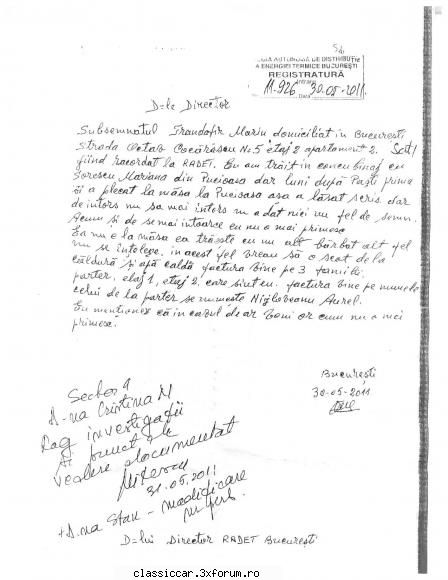 REGIA AUTONOMĂ DE DISTRIBUȚIE
A ENERGIEI TERMICE BUCUREȘTI
REGISTRATURĂ
11.926 Data 30.05.2011
D-le Director
Subsemnatul Trandafir Marin domiciliat în București
strada Octav Cocărăscu Nr. 5 etaj 2 apartament 2. Sect 1
fiind racordat la RADET. Eu am trăit în concubinaj cu
Sorescu Mariana din Pucioasa dar luni după Paști prima
zi a plecat la măsa la Pucioasa așa a lăsat scris dar
de întors nu sa mai întors nu a dat nici un fel de semn.
Acum și de se mai întoarce eu nu o mai primesc.
Ea nu e la măsa ea trăește cu un alt bărbat alt fel
nu se înțelege. în acest fel vreau să o scot de la
căldură și apă caldă factura vine pe 3 familii
parter, etaj 1, etaj 2. care sînt eu. factura vine pe numele
celui de la parter se numeste Aurel.
Eu menționez că în cazul de ar veni or cum nu o mai
primesc.
București
30-05-2011
Sector 1
D-na Cristina M
Rog investigații
și punct de
vedere documentat
31.05.2011
+ D.na Stan - modificare
nr pers
D-lui Director RADET București
classiccar.3xforum.ro